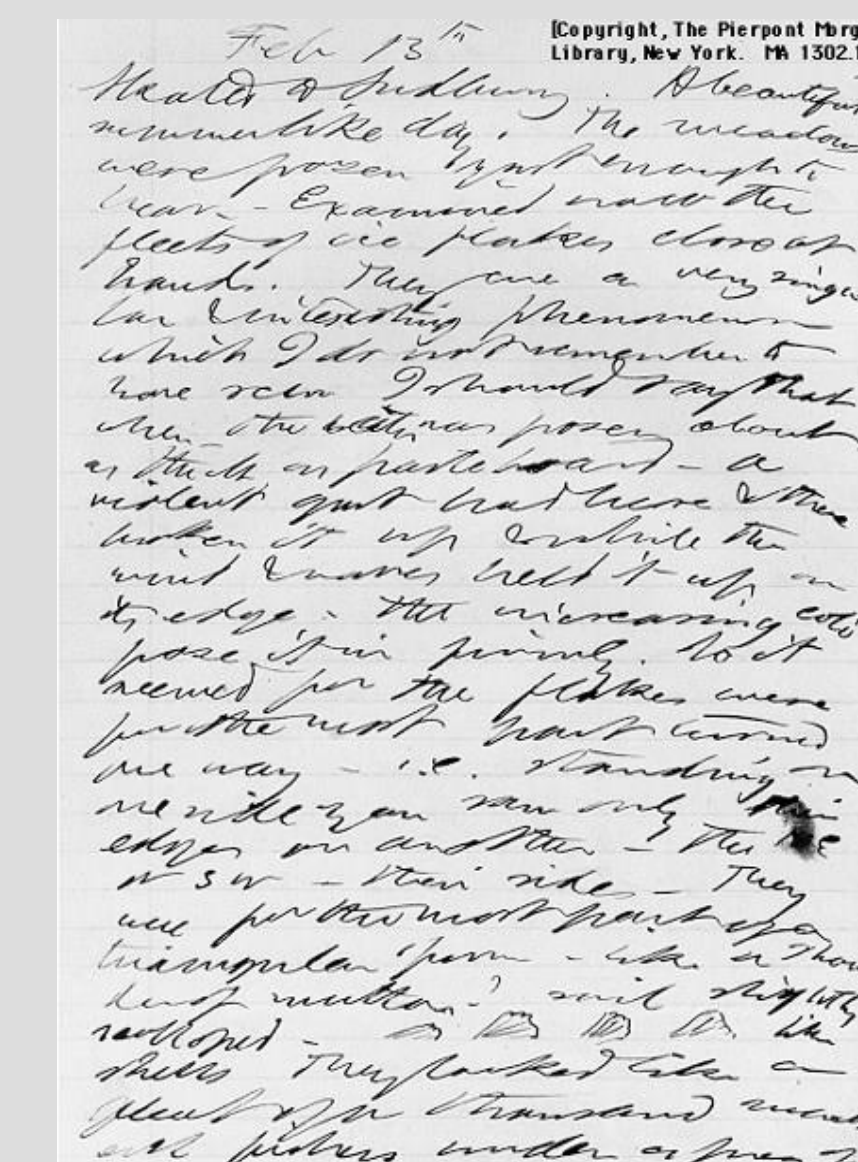 Feb 13th
[Copyright, The Pierpont Morg
Library, New York. MA 1302.1
Skated to Sudbury. A beautiful
summerlike day. The meadow
were frozen just enough to
bear. – Examined now the
fleets of ice flakes close at
hand. They are a very singu
lar & interesting phenomenon
which I do not remember to
have seen I should say that
when the water was frozen about
as thick as pasteboard – a
violent gust had here & there
broken it up & while the
wind & waves held it up on
its edge – the increasing cold
froze it in firmly. So it
seemed for the flakes were
for the most part turned
one way – i.e. standing on
one side you saw only their
edges on another – the NE
or SW – their sides – They
were for the most part of a
triangular form – like a shoul
der of mutton? sail slightly
scalloped – like
shells They looked like a
fleet of a thousand mack
erel fishers under a press of